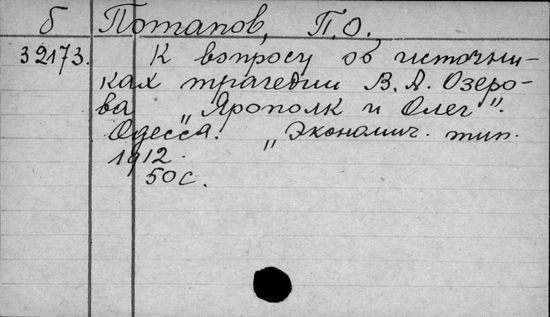 б Потапов, П.О.
32173. К вопросу об источни-
ках трагедии В. А. Озеро-
ва „Ярополк и Олег".
Одесса. „Экономич. тип.
1912.
50 с.